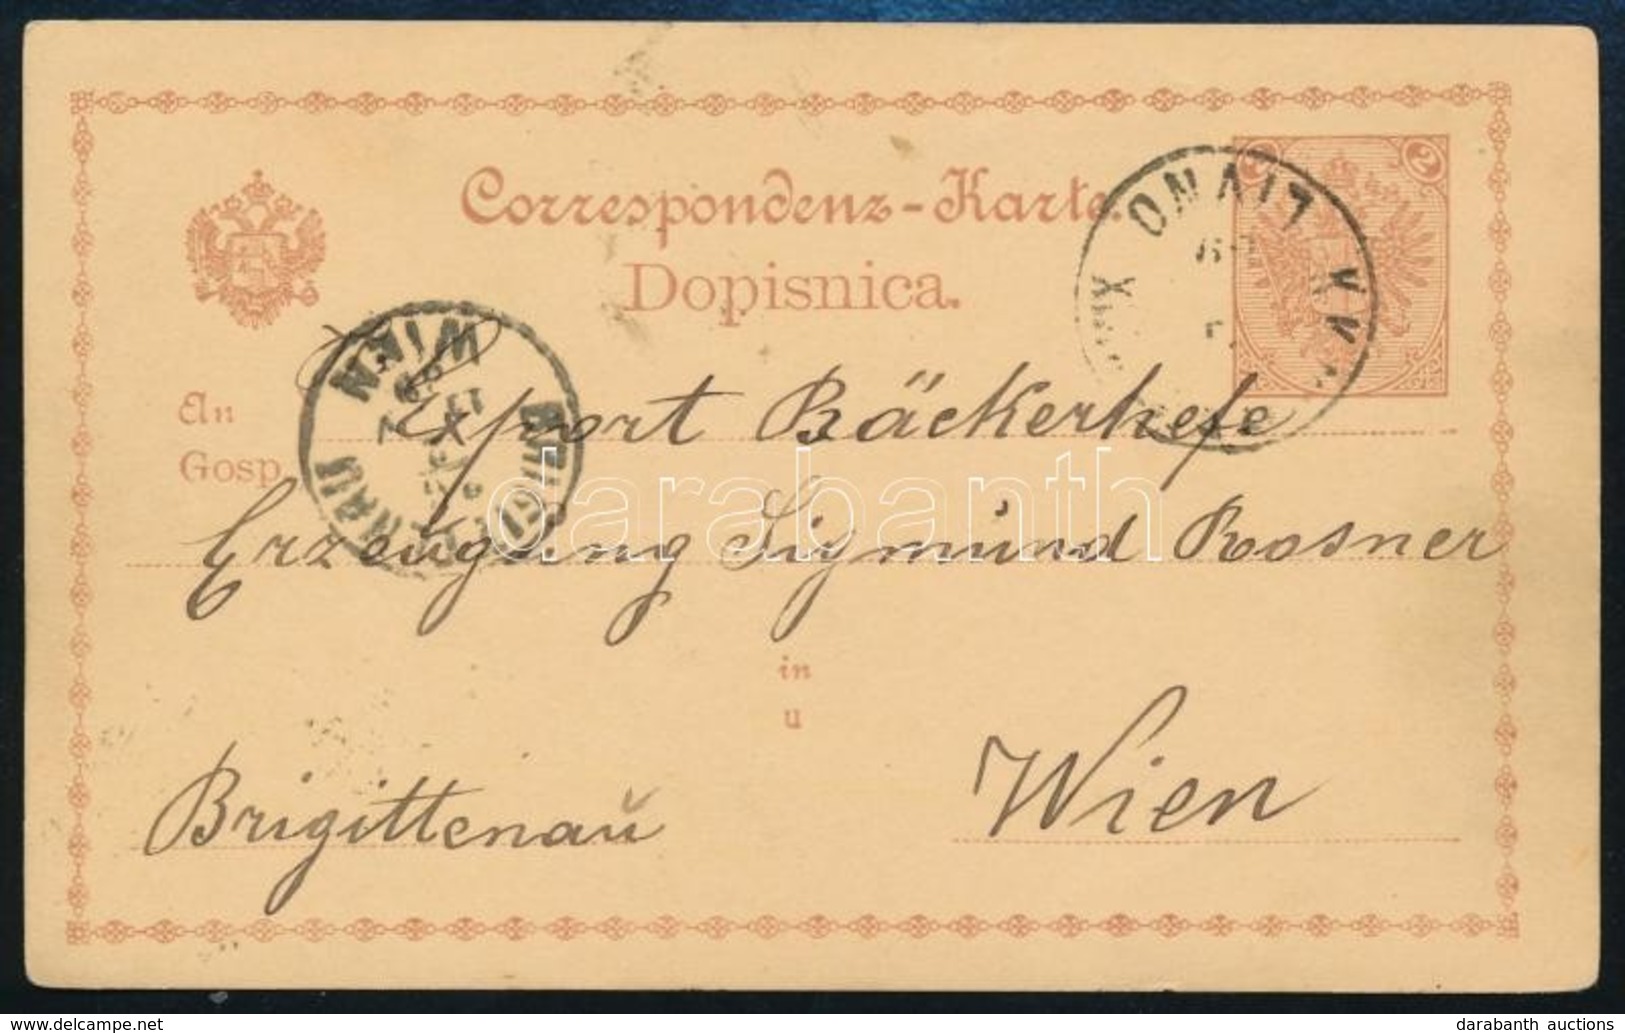 Correspondenz-Karte
Dopisnica.
2
LIVNO
WIEN
An
Gosp.
Export Bäckerhefe
Erzeugung Sigmund Rosner
in
u
Wien
Brigittenau
darabanth
www.delcampe.net
darabanth auctions